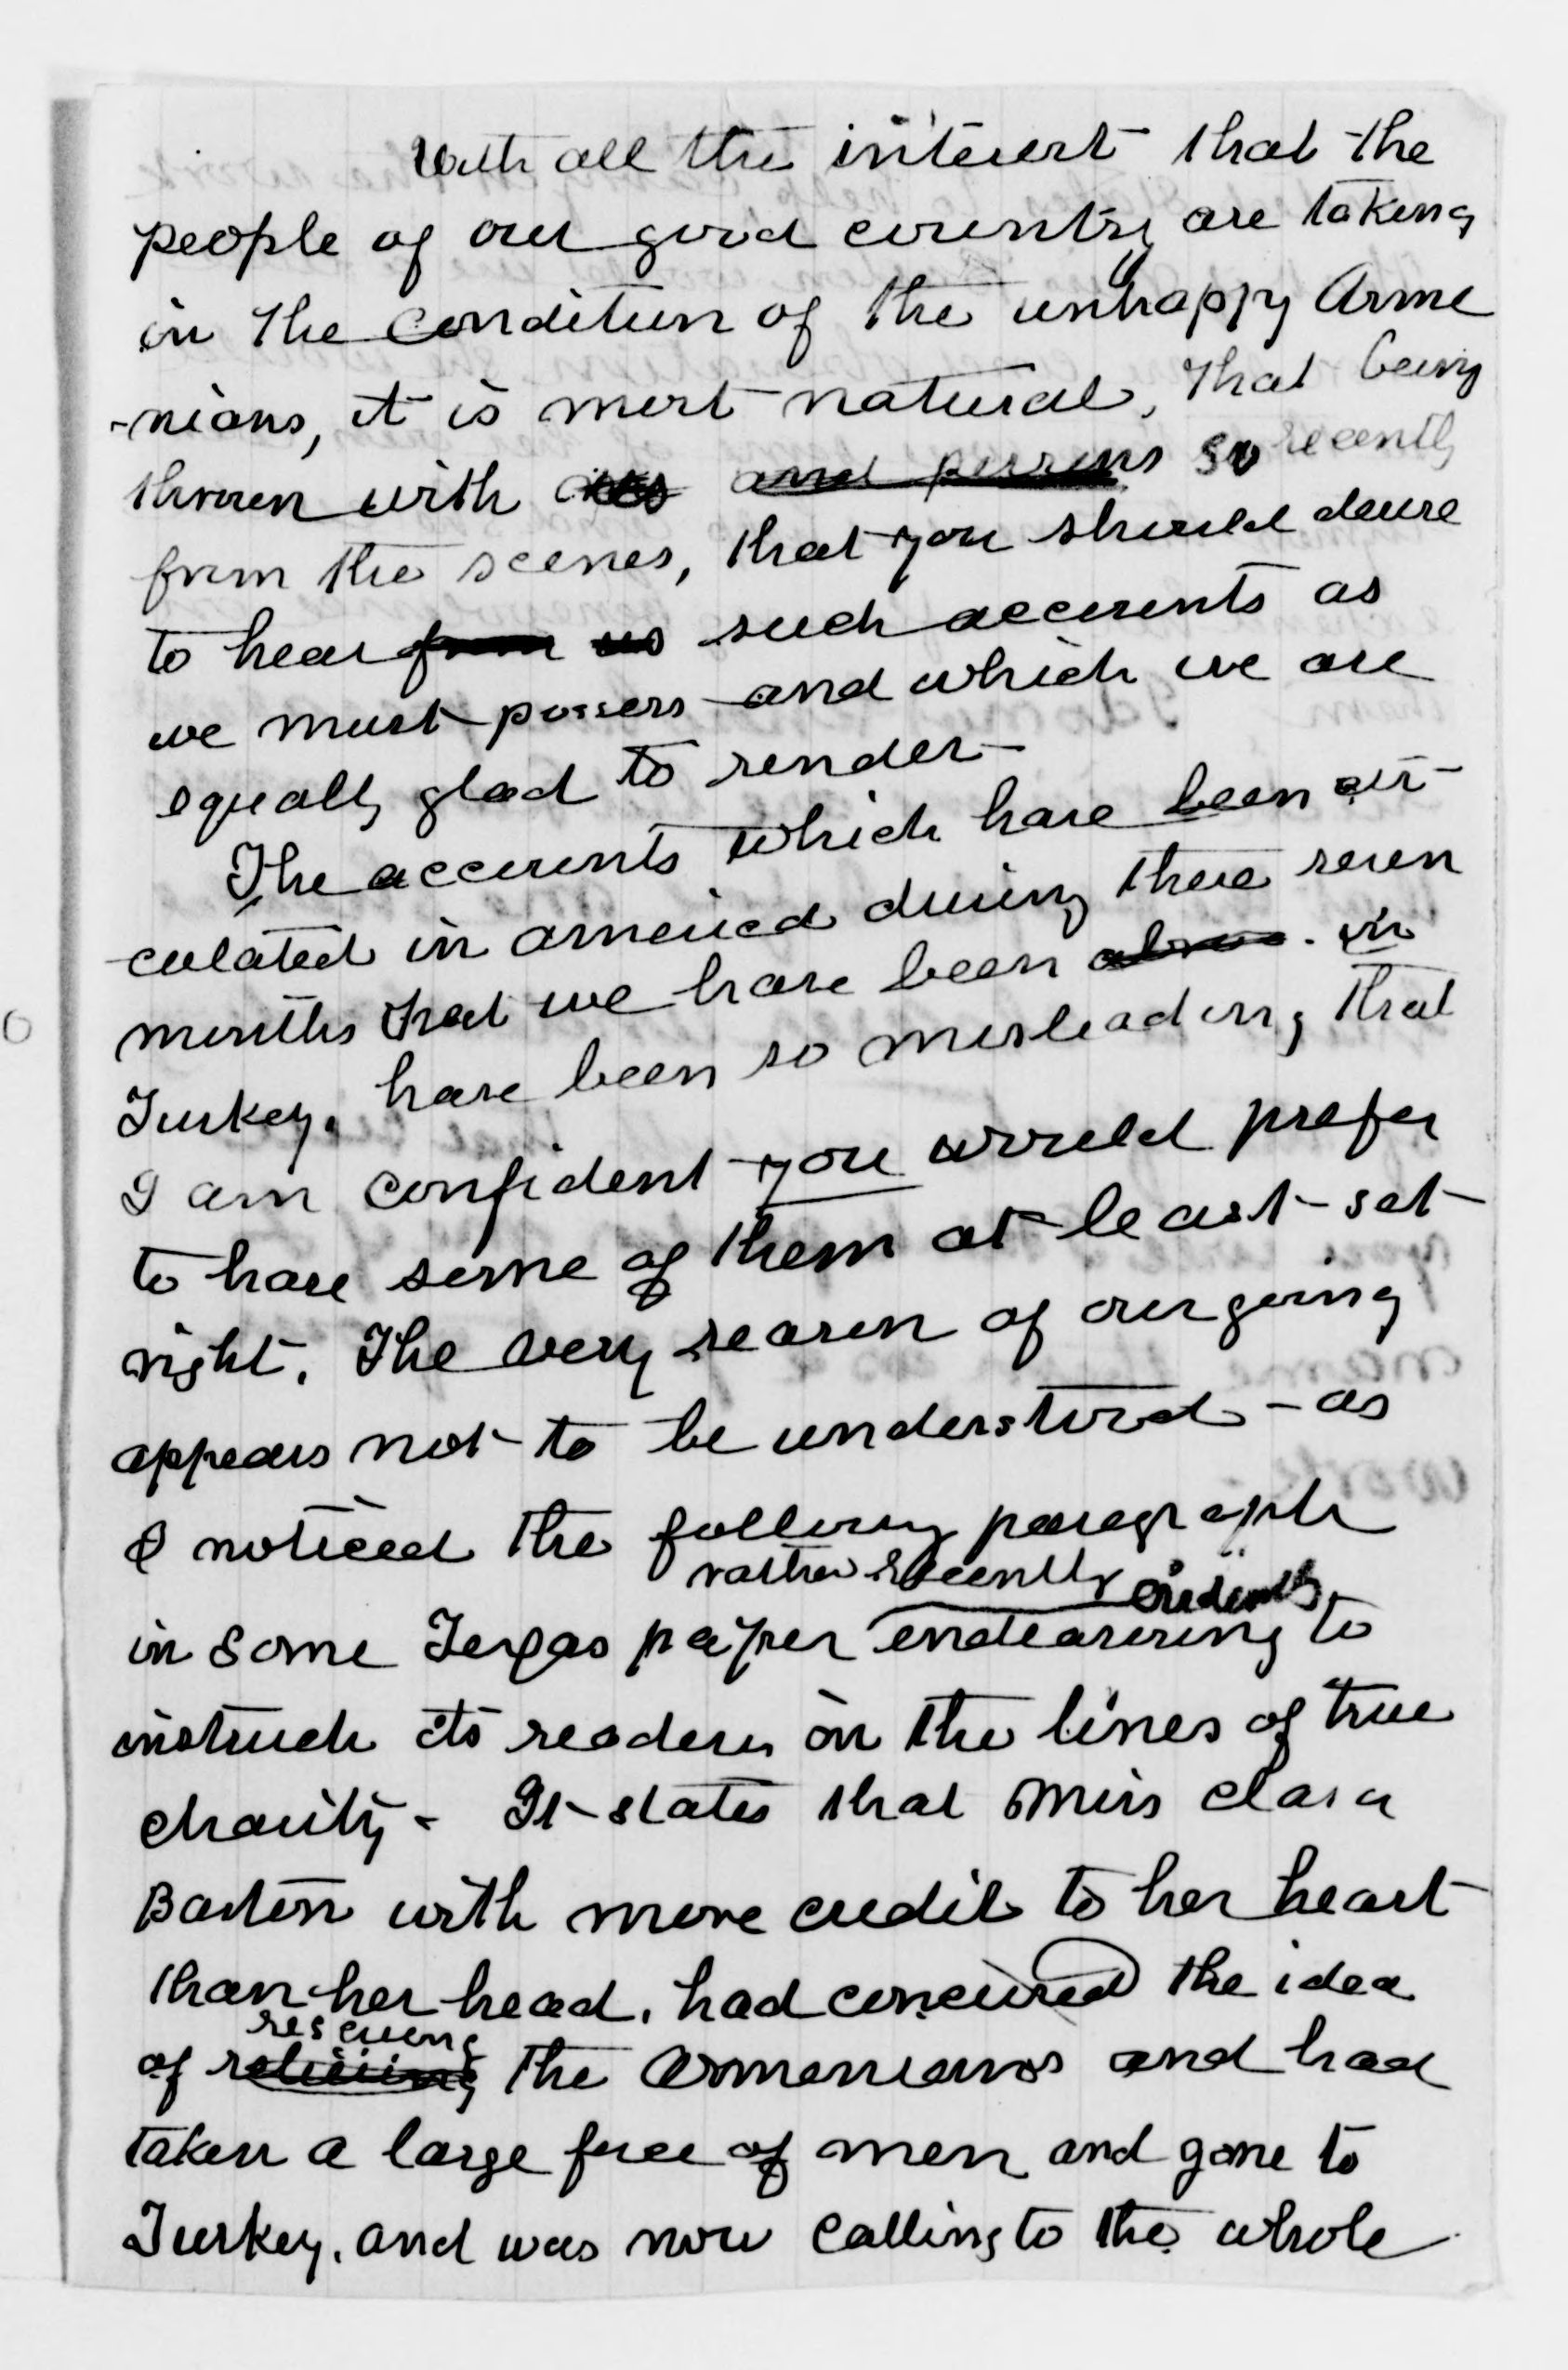 With all the interest that the
people of our good country are taking
in the condition of the unhappy Arme
-nians, it is most natural, that being
thrown with and persons so recently
from the scenes, that you should desire
to hear from us such accounts as
we must possess and which we are
equally glad to render -
The accounts which have been cir-
culated in America during these seven
months that we have been in
Turkey, have been so misleading that
I am confident you would prefer
to have some of them at least set
right. The very reason of our going
appears not to be understood - as
I noticed the following paragraph
rather recently evidently
in some Texas paper endeavoring to
instruct its readers in the lines of true
charity - It states that Miss Clara
Barton with more credit to her heart
than her head, had conceived the idea
rescuing
of relieving the Armenians and had
taken a large force of men and gone to
Turkey, and was now calling to the whole